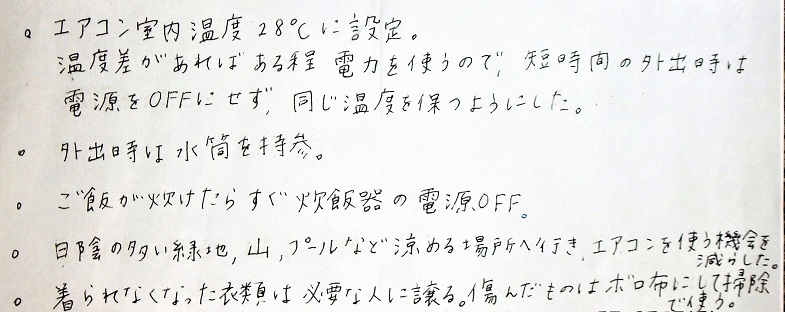 。エアコン室内温度28℃に設定。
温度差があればある程 電力を使うので、短時間の外出時は
電源をOFFにせず、同じ温度を保つようにした。
。外出時は水筒を持参。
。ご飯が炊けたらすぐ炊飯器の電源OFF。
。日陰の多い緑地、山、プールなど涼める場所へ行き、エアコンを使う機会を
減らした。
。着られなくなった衣類は必要な人に譲る。傷んだものはボロ布にして掃除
で使う。